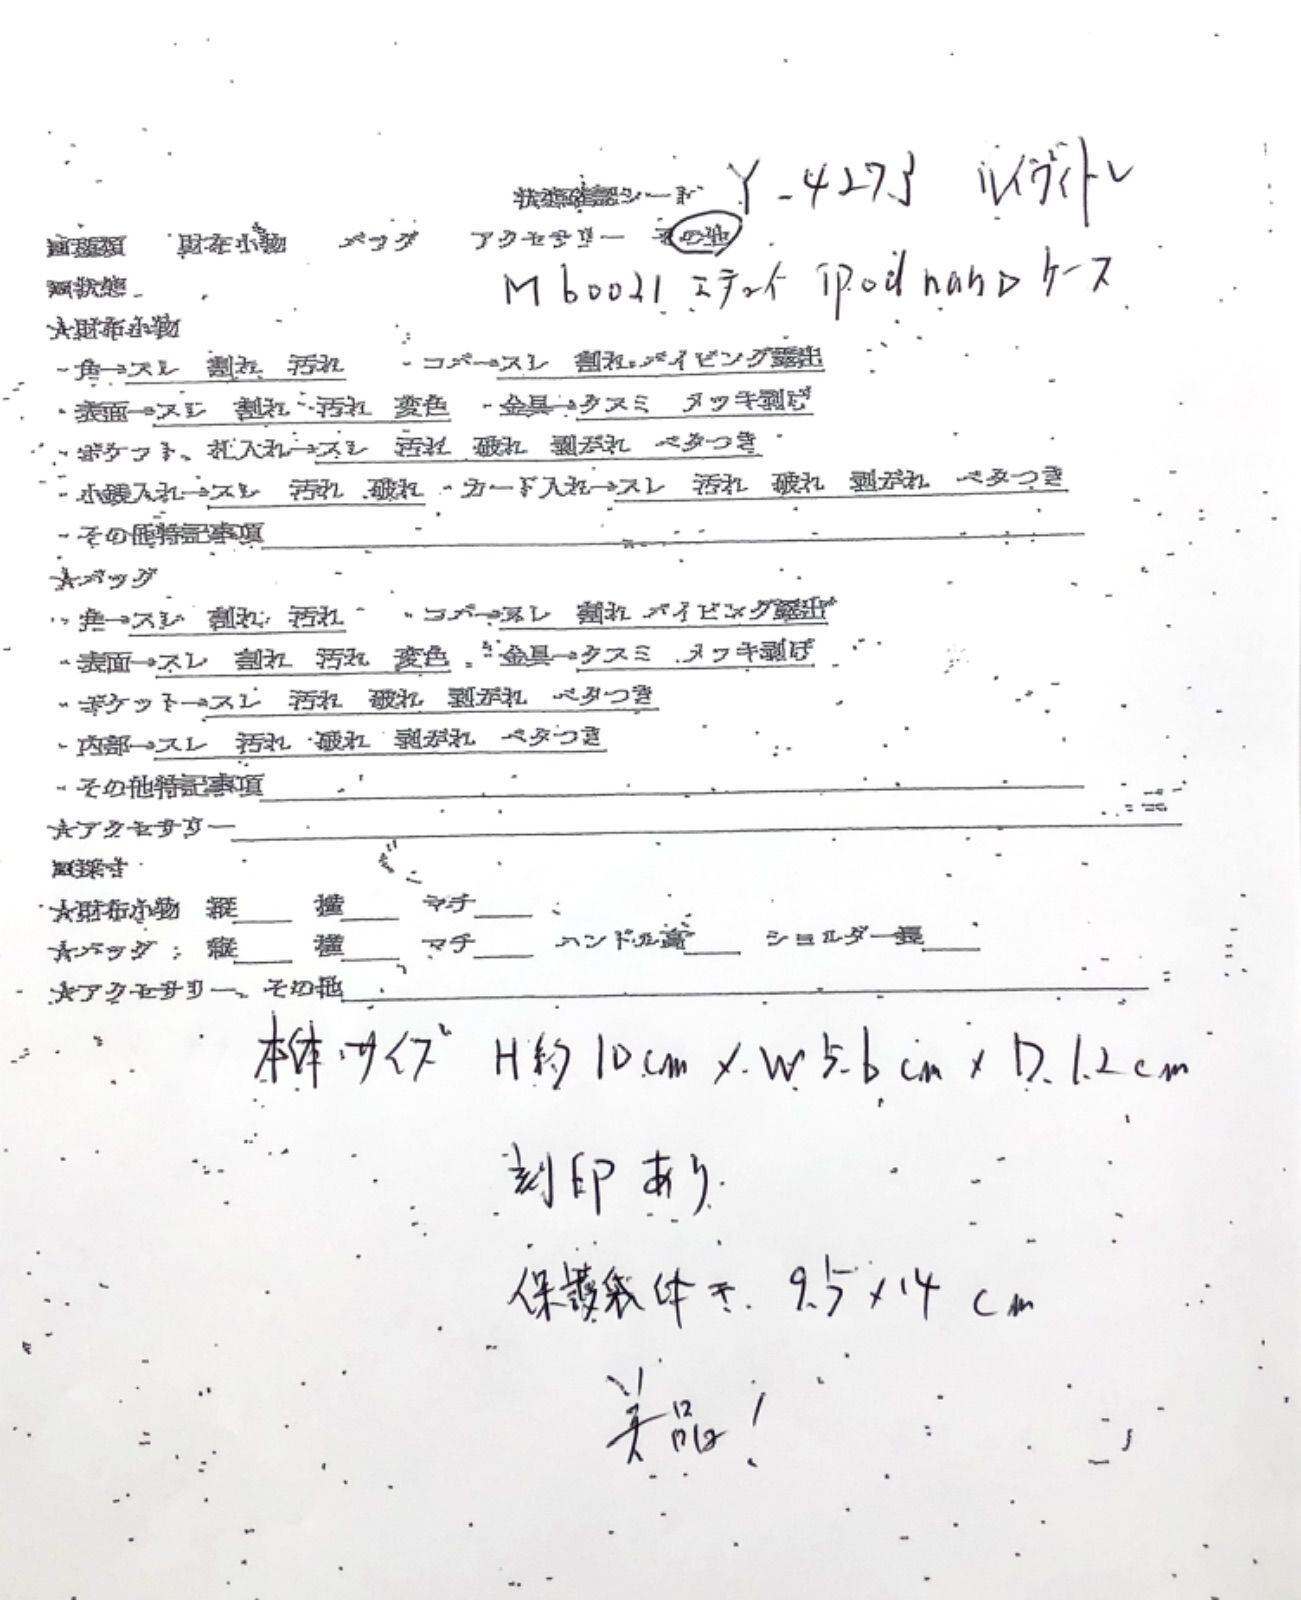 状態確認シート Y-4273 ルイヴィトン
■種類 財布小物 バッグ アクセサリー その他
■状態 M60021 エテュイ ipod nano ケース
★財布小物
・角→スレ 割れ 汚れ ・コバ→スレ 割れ パイピング露出
・表面→スレ 割れ 汚れ 変色 ・金具→クスミ メッキ剥げ
・ポケット、札入れ→スレ 汚れ 破れ 剥がれ ベタつき
・小銭入れ→スレ 汚れ 破れ ・カード入れ→スレ 汚れ 破れ 剥がれ ベタつき
・その他特記事項
★バッグ
・角→スレ 割れ 汚れ ・コバ→スレ 割れ パイピング露出
・表面→スレ 割れ 汚れ 変色 ・金具→クスミ メッキ剥げ
・ポケット→スレ 汚れ 破れ 剥がれ ベタつき
・内部→スレ 汚れ 破れ 剥がれ ベタつき
・その他特記事項
★アクセサリー
■採寸
★財布小物 縦 横 マチ
★バッグ 縦 横 マチ ハンドル高 ショルダー長
★アクセサリー、その他
本体サイズ H約10cm×W5.6cm×D1.2cm
刻印あり
保護袋 9.5×14cm
美品!